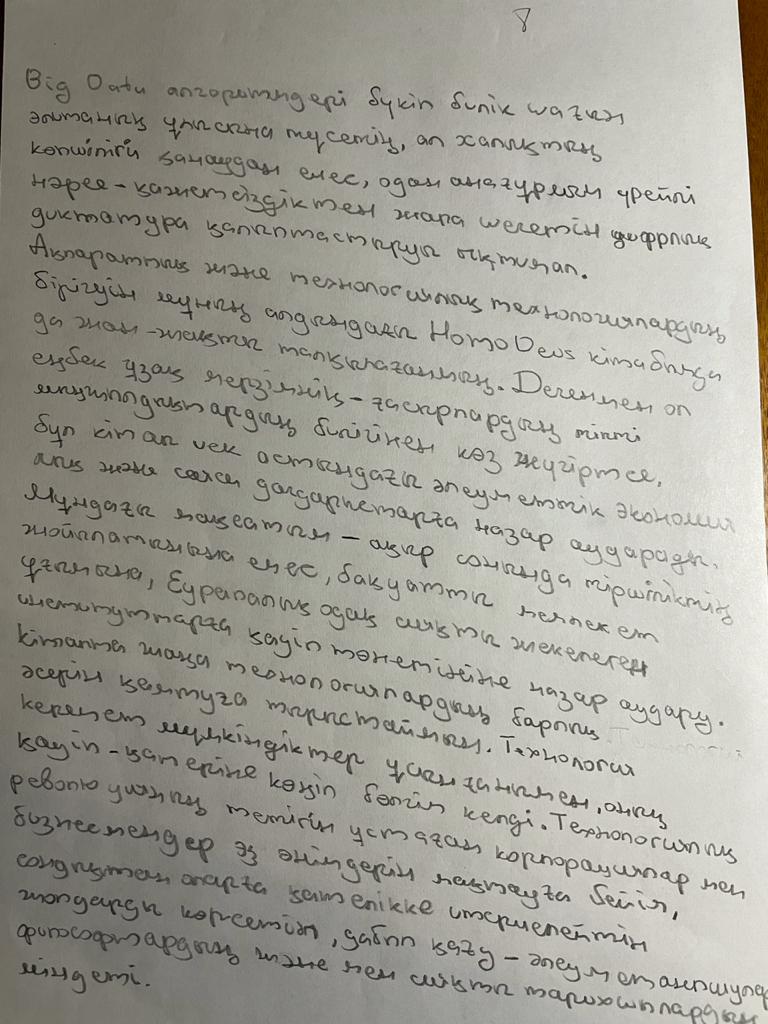 8
Big Data алгоритмдері бүкін билік шағын
элитаның уысына түсетін, ал халықтың
көпшілігі қанаудан емес, одан анағұрлым үрейлі
нәрсе - қажетсіздіктен жапа шегетін цифрлық
диктатура қалыптастыруы ықтимал.
Ақпараттық және технологиялық технологиялардың
бірігуін мұның алдындағы Homo Deus кітабында
да жан-жақты талқылағанмын. Дегенмен ол
еңбек ұзақ мерзімнің - ғасырлардың тіпті
мыңжылдықтардың биігінен көз жүгіртсе,
бұл кітап иек астындағы әлеуметтік экономи
лық және саяси дағдарыстарға назар аударады.
Мұндағы мақсатым - ақыр соңында тіршіліктің
жойылатынына емес, бақуатты мемлекет
ұғымына, Еуропалық одақ сияқты жекелеген
институттарға қауіп төнетініне назар аудару.
Кітапта жаңа технологиялардың барлық
әсерін қамтуға тырыспаймын. Технология
керемет мүмкіндіктер ұсынғанымен, оның
қауіп-қатеріне көңіл бөлгім келді. Технологиялық
революцияның тетігін ұстаған корпорациялар мен
бизнесмендер өз өнімдерін мақтауға бейім,
сондықтан оларға қателікке итермелейтін
жолдарды көрсетіп, дабыл қағу - әлеуметтанушылар
философтардың және мен сияқты тарихшылардың
міндеті.